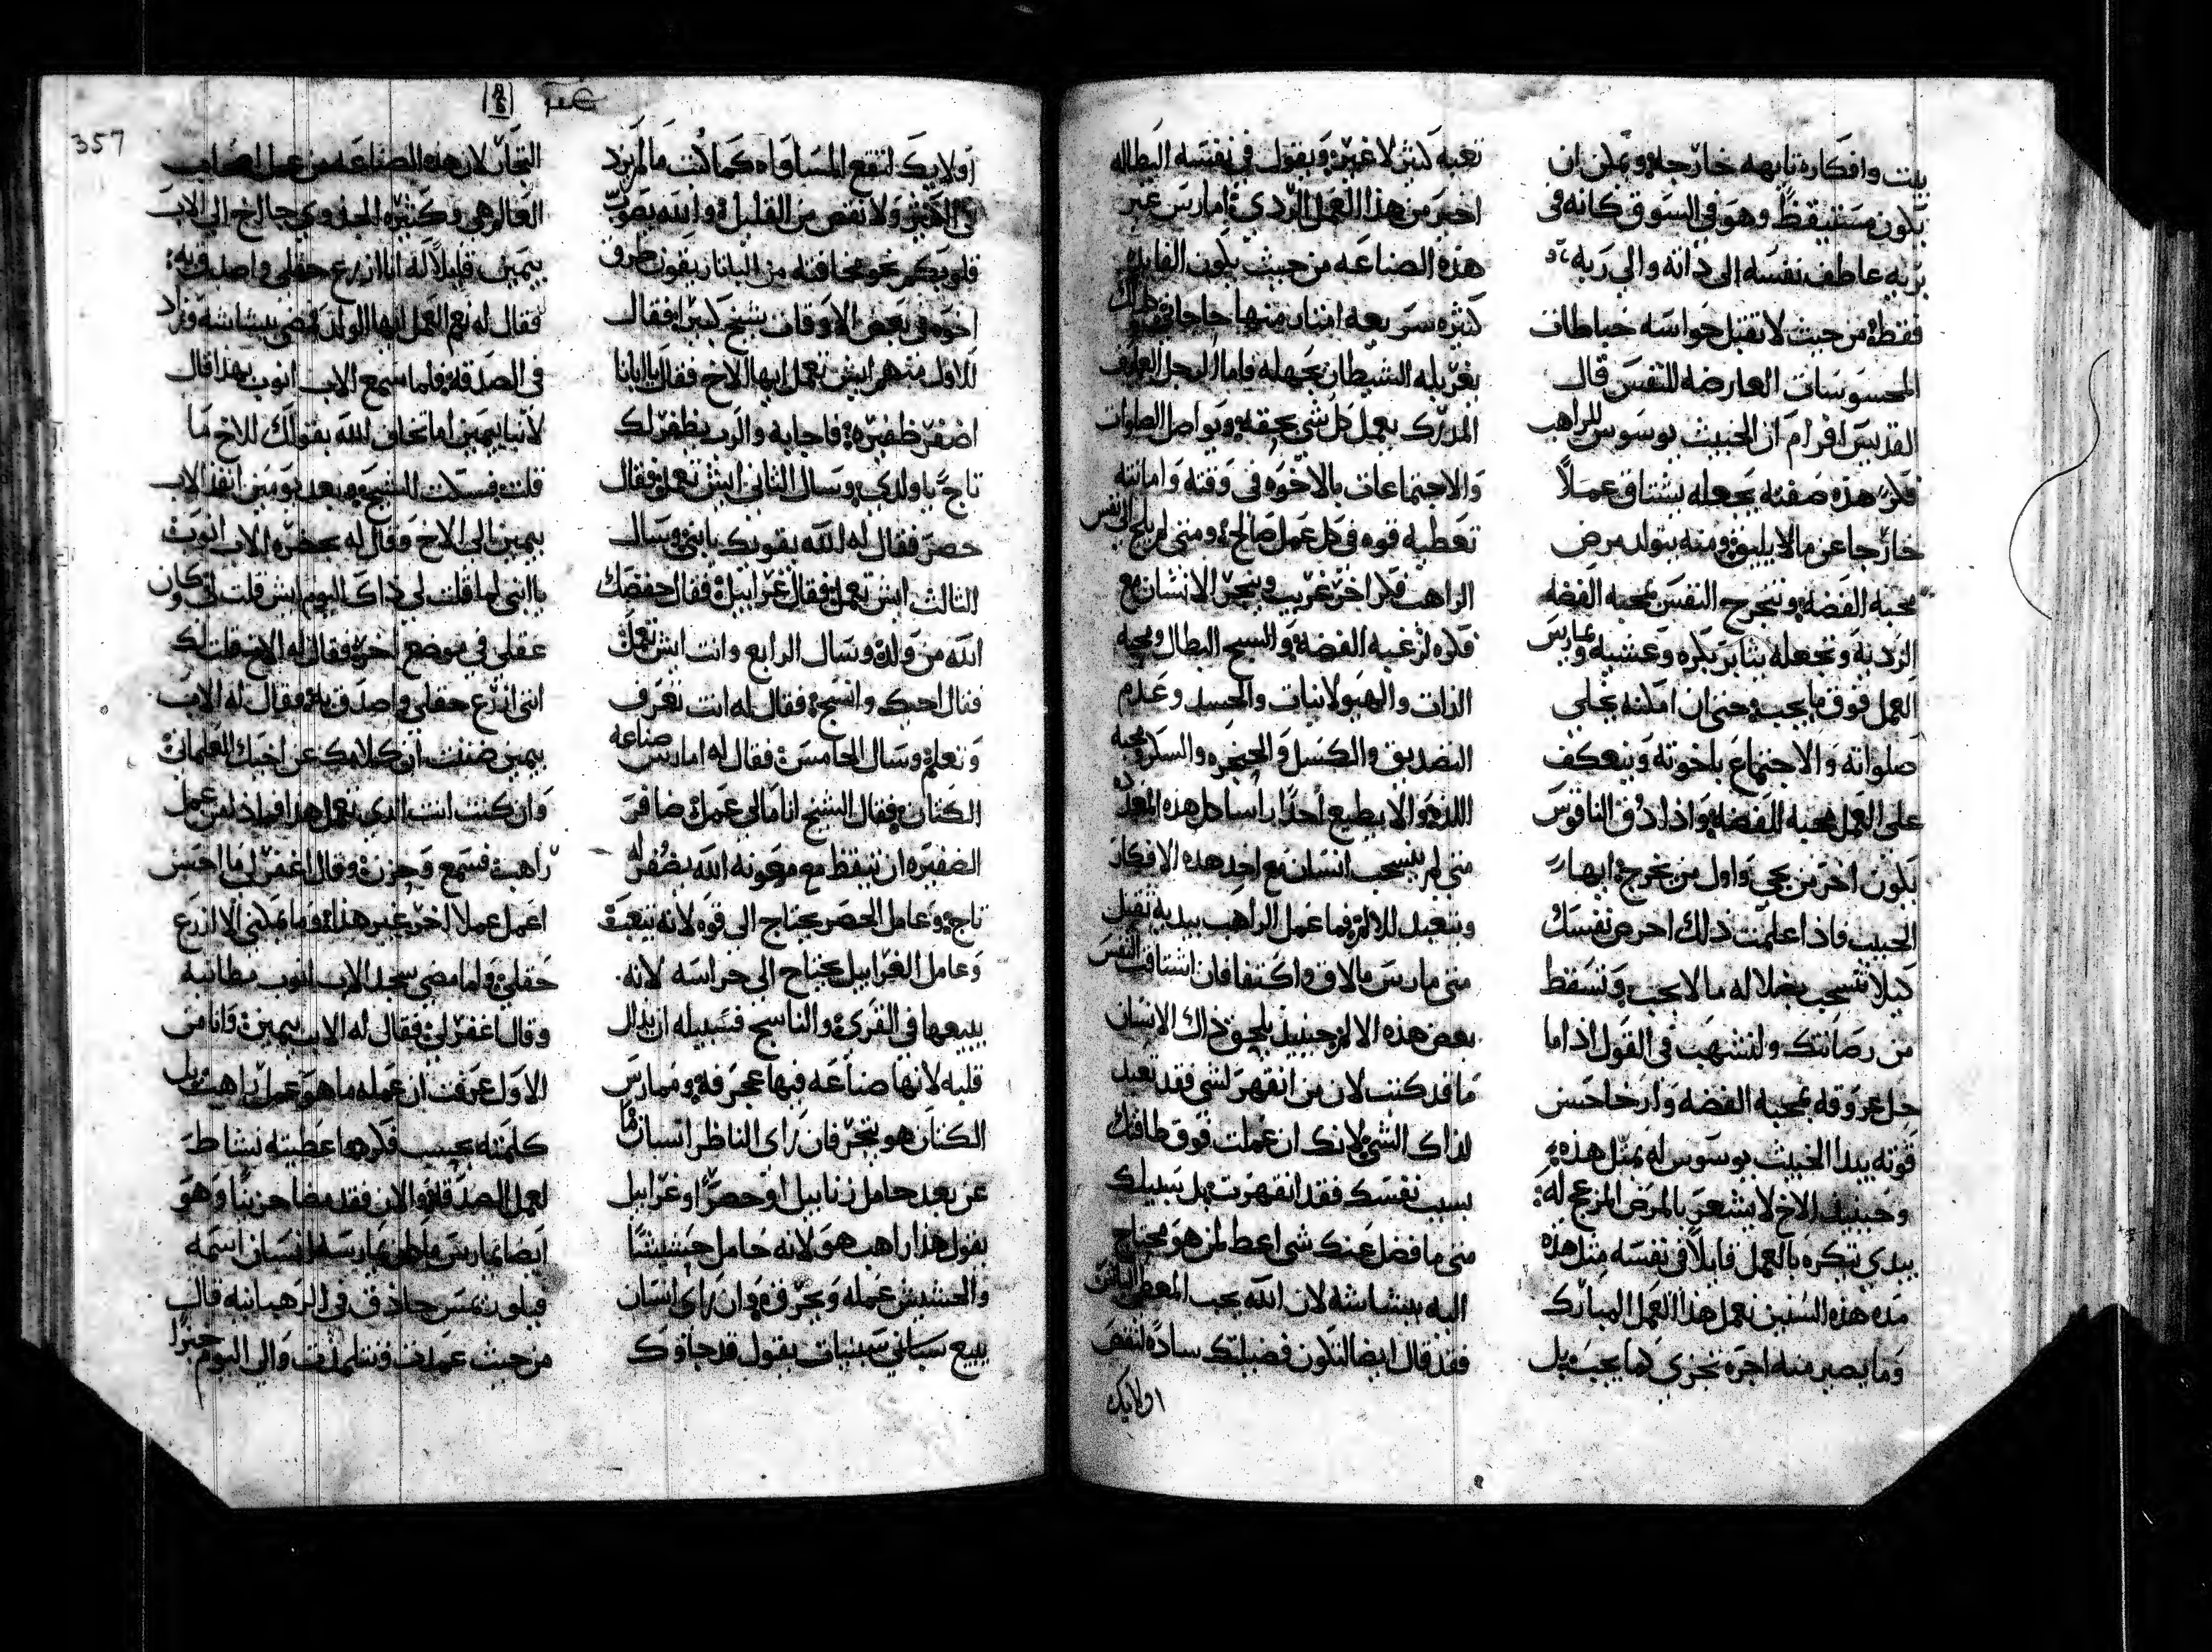 بيت وافكاره تايهه خارجا ويمكن ان
يكون مستيقظ وهو في السوق كانه في
بريه عاطف نفسه الى ذاته والى ربه
فقط من حيث لا تقبل حواسه خباطات
المحسوسات العارضه للنفس قال
القديس افرام ان الخبيث يوسوس للراهب
فكر هذه صفته يجعله يشتاق عملاً
خارجا عن ما لا يليق ومنه يتولد مرض
محبه الفضه وتنجرح النفس بمحبه الفضه
الرديه وتجعله يثابر بكره وعشيه ويمارس
العمل فوق ما يجب حتى ان امكنه يخلي
صلواته والاجتماع باخوته وينعكف
على العمل لمحبه الفضه واذا دق الناقوس
يكون اخر من يجي واول من يخرج ايها
الحبيب فاذا علمت ذلك احرص نفسك
كيلا تنسحب بضلاله ما لا يجب وتسقط
من رصانتك ولتشهب في القول اذا ما
حل عروقه بمحبه الفضه وارخا حس
قوته يبدا الخبيث يوسوس له بمثل هذه
وحينيذ الاخ لا يشعر بالمرض المزعج له
يبدي بتكره بالعمل قايلا في نفسه مثل هذه
مده هذه السنين نعمل هذا العمل المبارك
وما يصير منه اجره تجزي كما يجب بل
تعبه كثير لا غير ويقول في نفسه البطاله
اخير من هذا العمل الردي امارس غير
هذه الصناعه من حيث يكون الفايده
كثيره سريعه امتار منها حاجاتي
يغربله الشيطان بجهله فاما الرجل العارف
المدرك يعمل كل شي بحقه ويواصل الصلوات
والاجتماعات بالاخوه في وقته وامانته
تعطيه قوه في كل عمل صالح ومتى لم يلج الى نفس
الراهب فكر اخر غريب وينجر الانسان مع
فكره لرغبه الفضه والسبح البطال ومحبه
الذات والهيولانيات والحسد وعدم
التصديق والكسل والحنجره والسكر ومحبه
اللذه والا يطيع احدا راسا كل هذه
متى لم ينسحب انسان مع احد هذه الافكار
ويتعبد للالام فما عمل الراهب بيديه ثقيل
متى مارس ما لاق واكتفا فان اشتاقت النفس
بعض هذه الالام حينيذ يلحق ذاك الانسان
ما قد كتب لان من انقهر لشي فقد تعبد
لذاك الشي لانك ان عملت فوق طاقتك
بسبب نفسك فقد انقهرت بل سبيلك
متى ما فضل عنك شي اعط لمن هو محتاج
اليه ببشاشه لان الله يحب المعطي
فقد قال ايضا لتكون فضيلتك ساده لنقص
اولايك
اولايك لتقع المساواه كما كتب ما لم يزد
في الكثير ولا نقص من القليل والله يصوب
قلوبكم نحو مخافته من البلنار يقون طرق
اخوه في بعض الاوقات شيخ كبير فقال
للاول منهم ايش تعمل ايها الاخ فقال يا ابانا
اضفر ظفيره فاجابه والرب يظفر لك
تاج يا ولدي وسال الثاني ايش تعمل فقال
حصر فقال له الله يقويك يا بني وسال
الثالث ايش تعمل فقال غرابيل فقال حفضك
الله من ولد وسال الرابع وانت ايش تعمل
فقال احبك وانسج فقال له انت تعرف
وتعلم وسال الخامس فقال له امارس صناعه
الكتان فقال الشيخ انا ما لي عمرك ضافر
الضفيره ان تيقظ مع معونه الله يضفر له
تاج وعامل الحصر يحتاج الى قوه لانه تتعب
وعامل الغرابيل يحتاج الى حراسه لانه
يبيعها في القرى والناسج فسبيله ان يذل
قلبه لانها صناعه فيها عجرفه وممارس
الكتان هو يتجر فان راى الناظر انسان
عن بعد حامل زنابيل او حصر او غرابيل
يقول هذا راهب هو لانه حامل حشيشا
والحشيش عمله ويحرق وان راى انسان
يبيع سباني سبنيات يقول قد جاوك
التجار لان هذه الصناعه من عمل اصحاب
العالم هي وكثيره الجذوي جا الخ الى الاب
بيمين قايلا له انا ازرع حقلي واصدق به
فقال له نعم العمل ايها الولد فمضى ببشاشه وزاد
في الصدقه فلما سمع الاب انوب بهذا قال
لانبا بيمين اما تخاف الله بقولك للاخ ما
قلت فسكت الشيخ وبعد يومين انفذ الاب
بيمين الى الاخ وقال له بحضره الاب انوب
يا ابني لما قلت لي ذاك اليوم ايش قلت لي وكان
عقلي في موضع اخر فقال له الاخ قلت لك
انني ازرع حقلي واصدق به فقال له الاب
بيمين ضننت ان كلامك عن اخيك العلماني
وان كنت انت الذي تعمل هذا فما ذا من عمل
راهب فسمع وحزن وقال اغفر لي ما احسن
اعمل عملا اخر غير هذا وما يمكنني الا ازرع
حقلي ولما مضى سجد الاب انوب مطانيه
وقال اغفر لي فقال له الاب بيمين وانا من
الاول عرفت ان عمله ما هو عمل راهب بل
كلمته بحسب فكره اعطيته نشاط
لعمل الصدقه والان فقد مضا حزينا وهو
ايضا يمارس ما هو يمارسه انسان اسمه
فيلون شمس حاذق في الرهبانيه قال
من حيث عملت وتسلمت والى اليوم خبزا